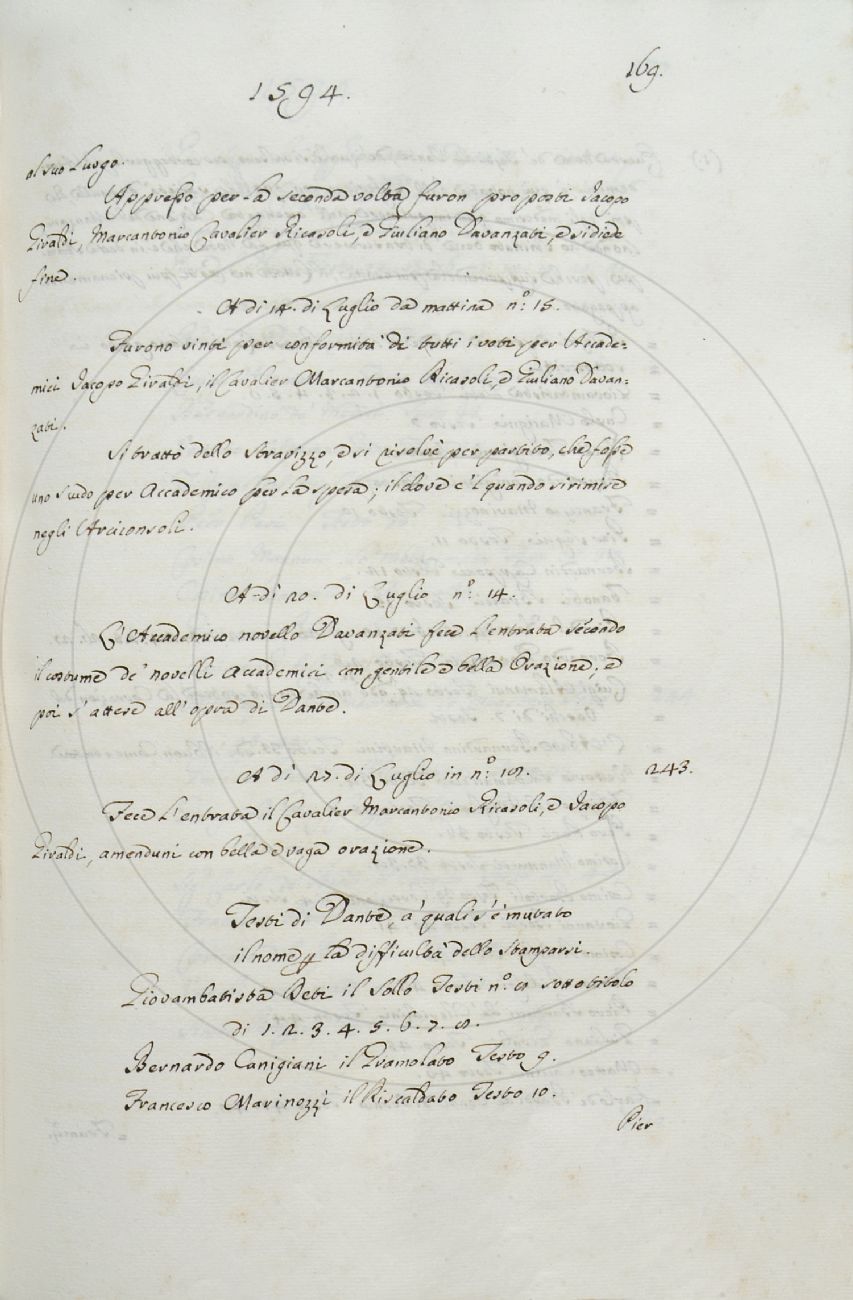 169.
1594.
al suo Luogo.
Appresso per la seconda volta furon proposti Jacopo
Giraldi, Marcantonio Cavalier Ricasoli, e Giuliano Davanzati, e si diede
fine.
A di 14. di Luglio da mattina n.º 15.
Furono vinti per conformità di tutti i voti per Accade-
mici Jacopo Giraldi, il Cavalier Marcantonio Ricasoli, e Giuliano Davan-
zati.
Si trattò dello stravizzo, e si risolvè per partito, che fosse
uno scudo per Accademico per la spesa; il dove e 'l quando si rimise
negli Arciconsoli.
A dì 20. di Luglio n.º 14.
L'Accademico novello Davanzati fece l'entrata secondo
il costume de' novelli Accademici con gentile e bella Orazione; e
poi s'attese all'opra di Dante.
A dì 27. di Luglio in n.º 18. 243.
Fece l'entrata il Cavalier Marcantonio Ricasoli, e Jacopo
Giraldi, amenduni con bella e vaga orazione.
Testi di Dante, a' quali s'è mutato
il nome p la difficultà dello stamparsi.
Giovambatista Deti il Sollo Testi n.º 8 sotto titolo
di 1. 2. 3. 4. 5. 6. 7. 8.
Bernardo Canigiani il Gramolato Testo 9.
Francesco Marinozzi il Riscaldato Testo 10.
Pier